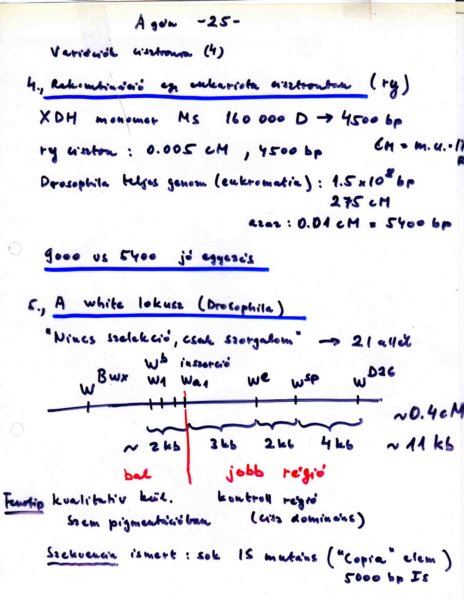 A gén -25-
Variációk cisztronra (4)
4., Rekombináció egy eukariota cisztronban (ry)
XDH monomer Ms 160 000 D → 4500 bp
ry cisztron : 0.005 cM , 4500 bp cM = m.u.
Drosophila teljes genom (eukromatin) : 1.5 x 10⁸ bp
275 cM
azaz : 0.01 cM = 5400 bp
9000 vs 5400 jó egyezés
5., A white lokusz (Drosophila)
"Nincs szelekció, csak szorgalom" → 21 allél
w^Bwx w^b w1 inszerció wa1 w^e w^sp w^D26
~0.4 cM
~ 2 kb 3 kb 2 kb 4 kb ~ 11 kb
bal jobb régió
Fenotip kvalitatív kül. kontroll régió
szem pigmentációban (cisz domináns)
Szekvencia ismert : sok IS mutáns ("Copia" elem)
5000 bp IS